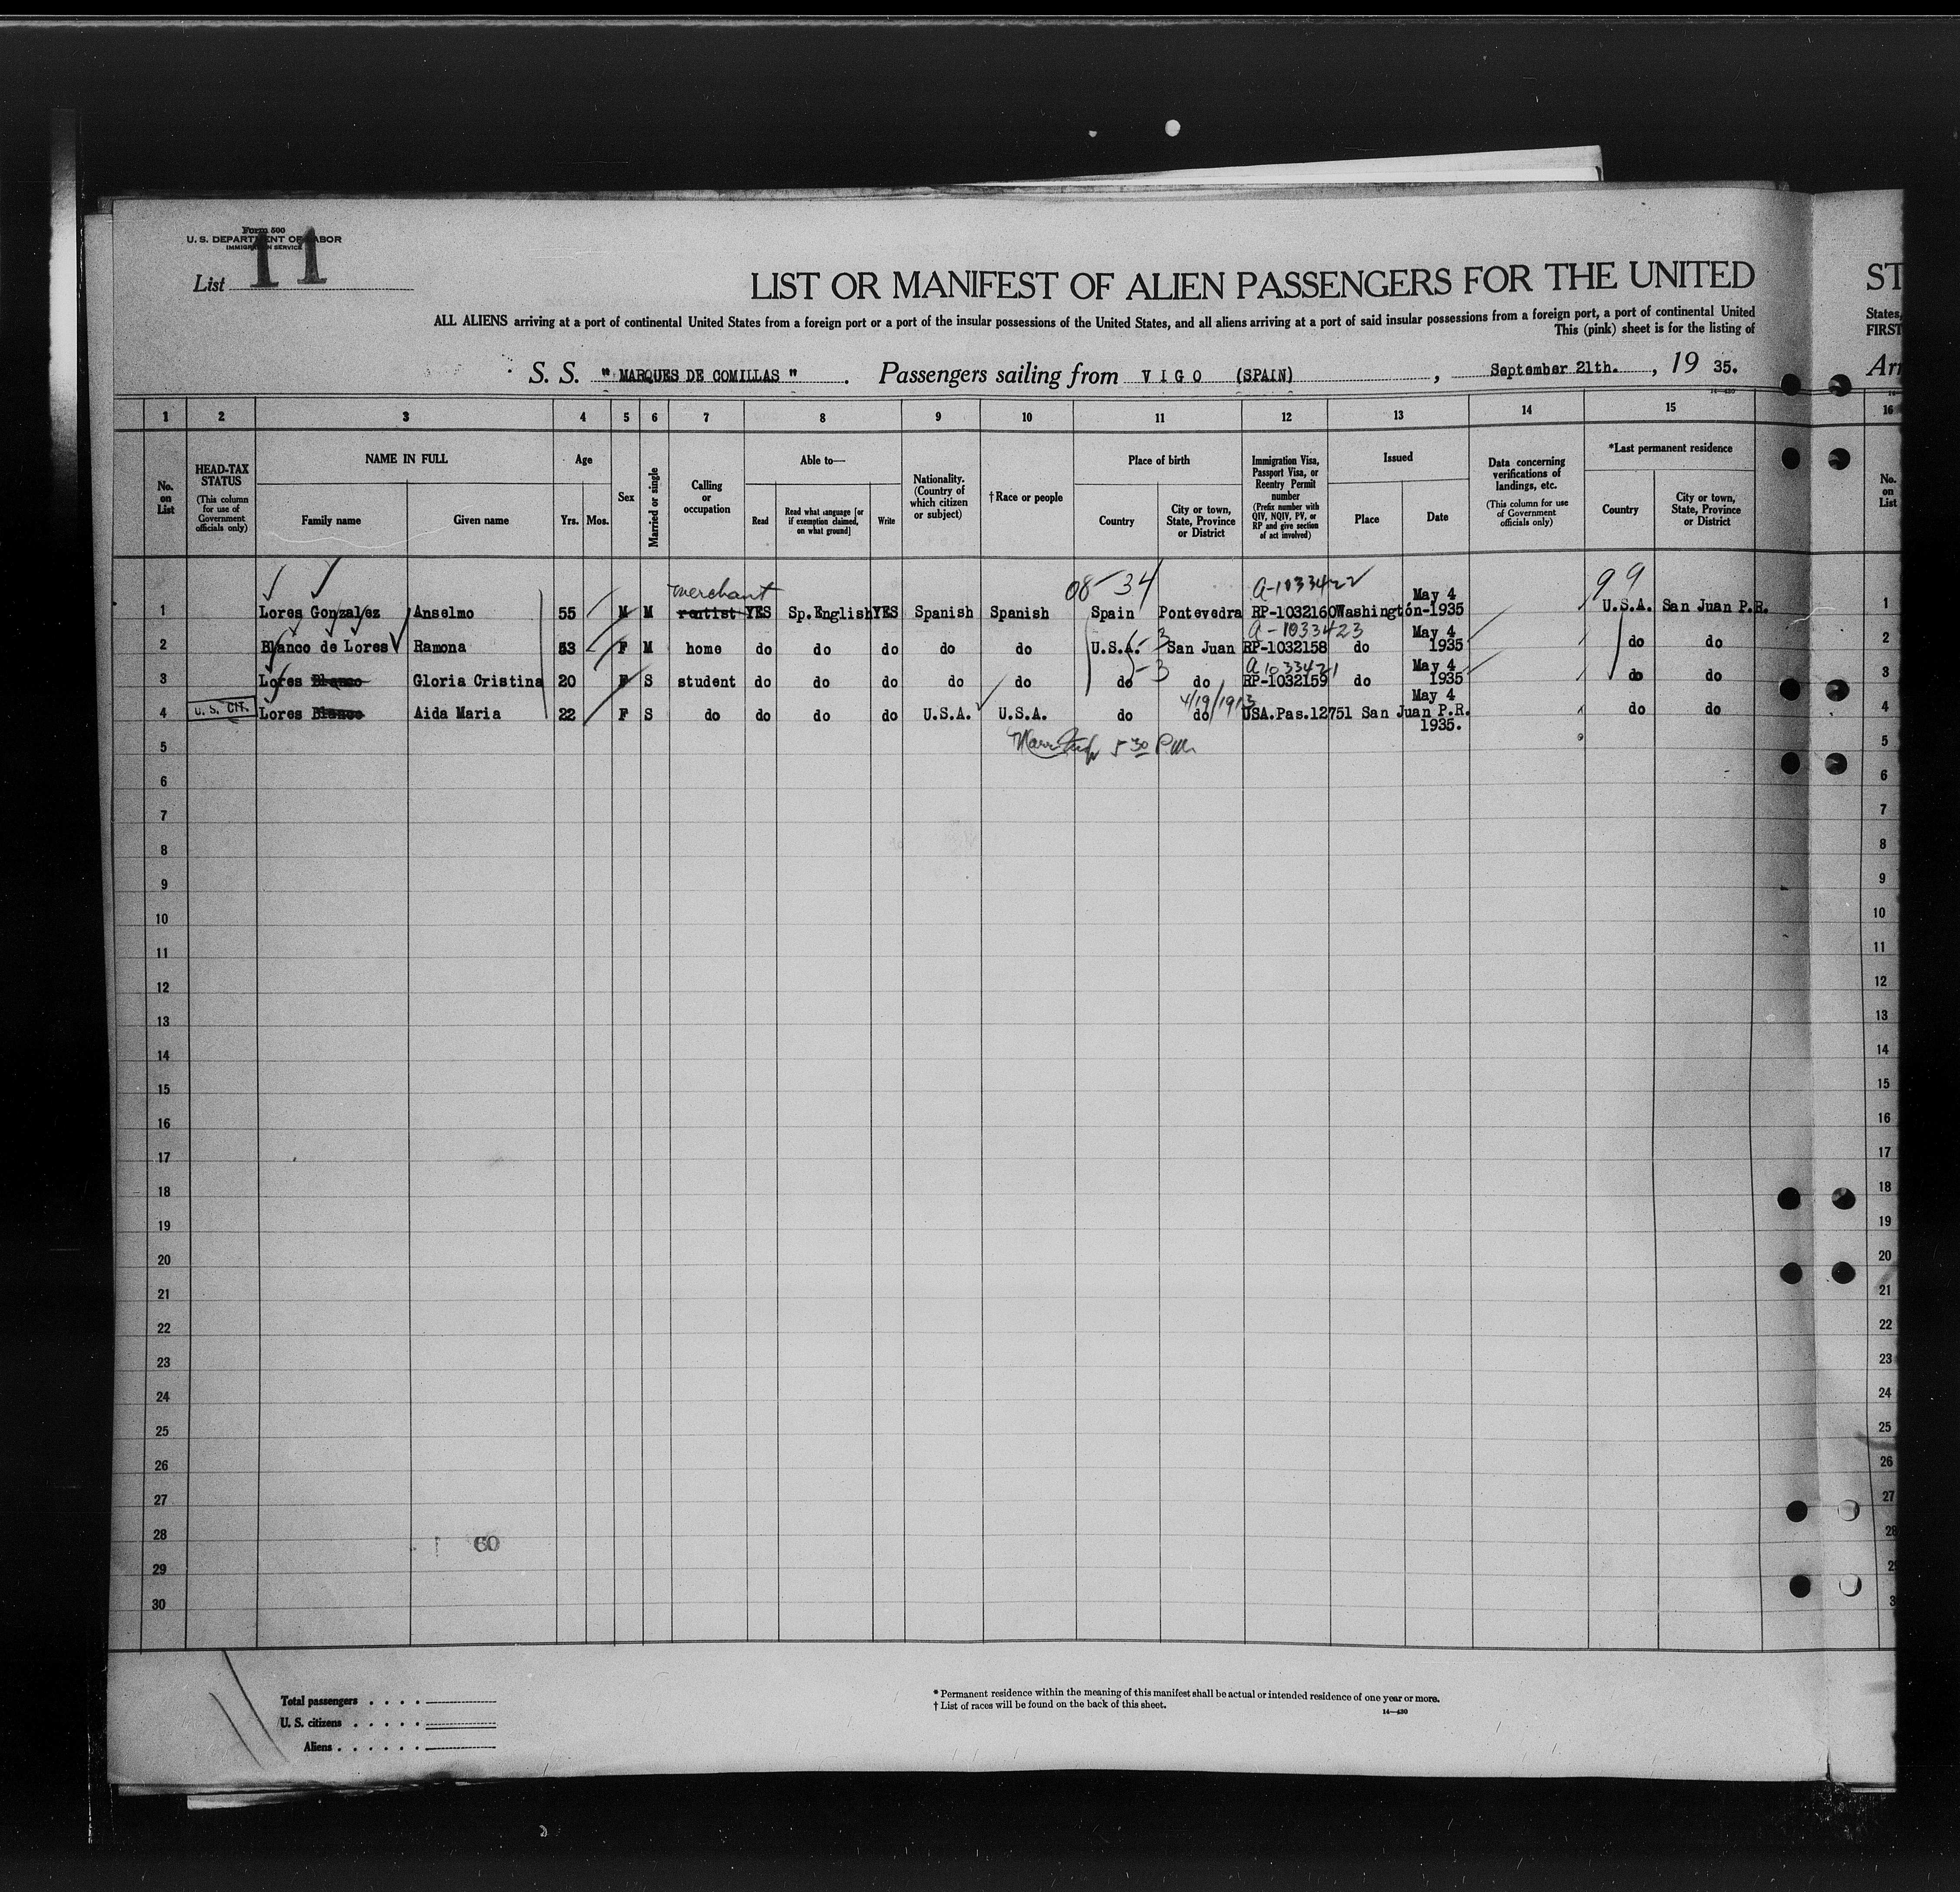 Form 500
U. S. DEPARTMENT OF LABOR
IMMIGRATION SERVICE
List 11
LIST OR MANIFEST OF ALIEN PASSENGERS FOR THE UNITED
ST
ALL ALIENS arriving at a port of continental United States from a foreign port or a port of the insular possessions of the United States, and all aliens arriving at a port of said insular possessions from a foreign port, a port of continental United
States,
This (pink) sheet is for the listing of
FIRST
S. S. " MARQUES DE COMILLAS " . Passengers sailing from V I G O (SPAIN) , September 21th. , 19 35.
Arr
14—430
1 2 3 4 5 6 7 8 9 10 11 12 13 14 15 16
No. on List
HEAD-TAX STATUS
(This column for use of Government officials only)
NAME IN FULL
Family name
Given name
Age
Yrs. Mos.
Sex
Married or single
Calling or occupation
Able to—
Read
Read what language [or if exemption claimed, on what ground]
Write
Nationality. (Country of which citizen or subject)
† Race or people
Place of birth
Country
City or town, State, Province or District
Immigration Visa, Passport Visa, or Reentry Permit number
(Prefix number with QIV, NQIV, PV, or RP and give section of act involved)
Issued
Place
Date
Data concerning verifications of landings, etc.
(This column for use of Government officials only)
*Last permanent residence
Country
City or town, State, Province or District
No. on List
merchant 08-34 A-1033422 99
1 Lores Gonzalez Anselmo 55 M M rentist YES Sp.English YES Spanish Spanish Spain Pontevedra RP-1032160 Washingtón- May 4 1935 U.S.A. San Juan P.R. 1
A-1033423
2 Blanco de Lores Ramona 53 F M home do do do do do U.S.A. -3 San Juan RP-1032158 do May 4 1935 do do 2
A1033421
3 Lores Blanco Gloria Cristina 20 F S student do do do do do do -3 do RP-1032159 do May 4 1935 do do 3
4/19/1913
4 U. S. CIT. Lores Blanco Aida Maria 22 F S do do do do U.S.A. U.S.A. do do USA.Pas.12751 San Juan P.R. May 4 1935. do do 4
5 5 30 PM 5
6 6
7 7
8 8
9 9
10 10
11 11
12 12
13 13
14 14
15 15
16 16
17 17
18 18
19 19
20 20
21 21
22 22
23 23
24 24
25 25
26 26
27 27
28 60 28
29 2
30 3
Total passengers . . . .
U. S. citizens . . . . .
Aliens . . . . . .
* Permanent residence within the meaning of this manifest shall be actual or intended residence of one year or more.
† List of races will be found on the back of this sheet.
14—430